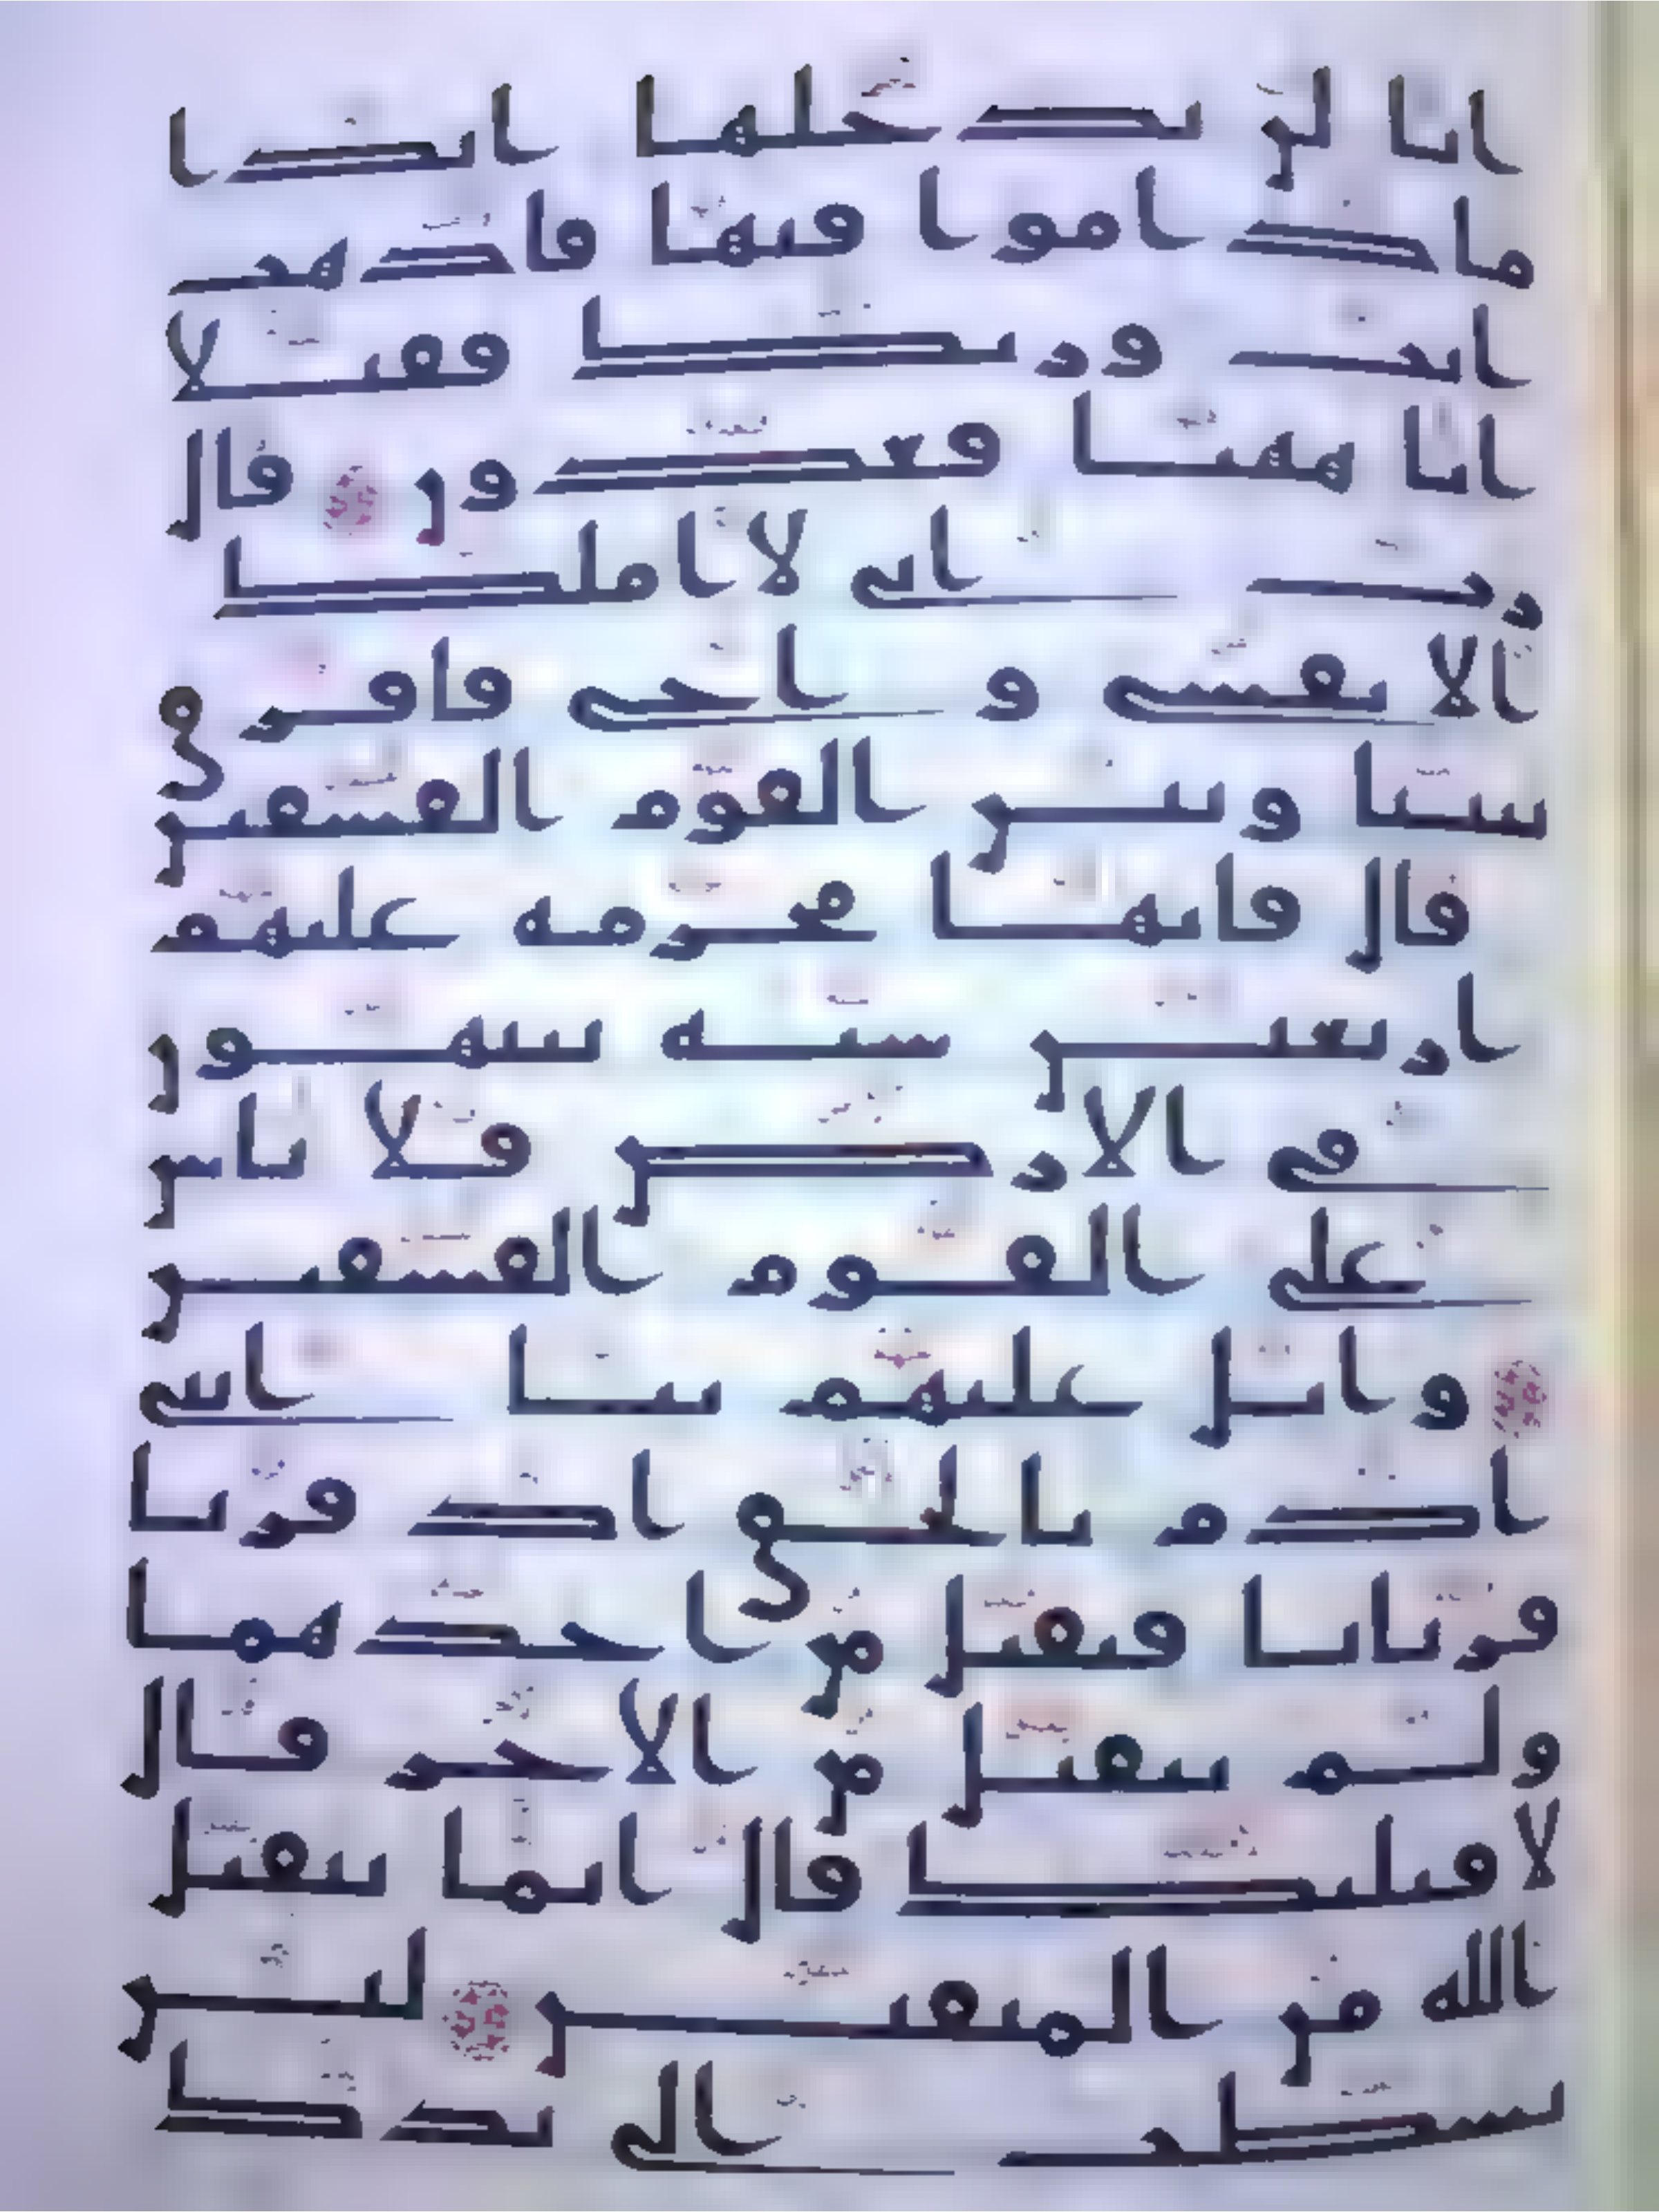 انا لن ندخلها ابدا
ماداموا فيها فاذهب
انت وربك فقتلا
انا ههنا قعدون قال
رب اني لا املك
الا نفسي و اخي فافرق
بيننا وبين القوم الفسقين
قال فانها محرمة عليهم
اربعين سنة يتيهون
في الارض فلا تاس
على القوم الفسقين
واتل عليهم نبا ابني
ادم بالحق اذ قربا
قربانا فتقبل من احدهما
ولم يتقبل من الاخر قال
لاقتلنك قال انما يتقبل
الله من المتقين لئن
بسطت الي يدك